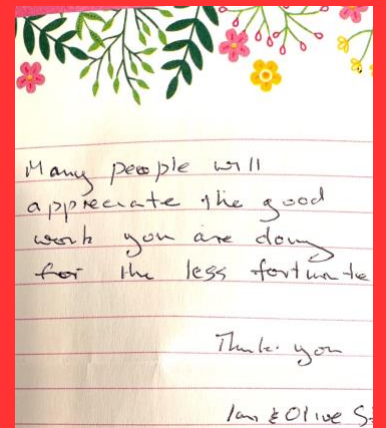 Many people will
appreciate the good
work you are doing
for the less fortunate
Thank you
Ian & Olive